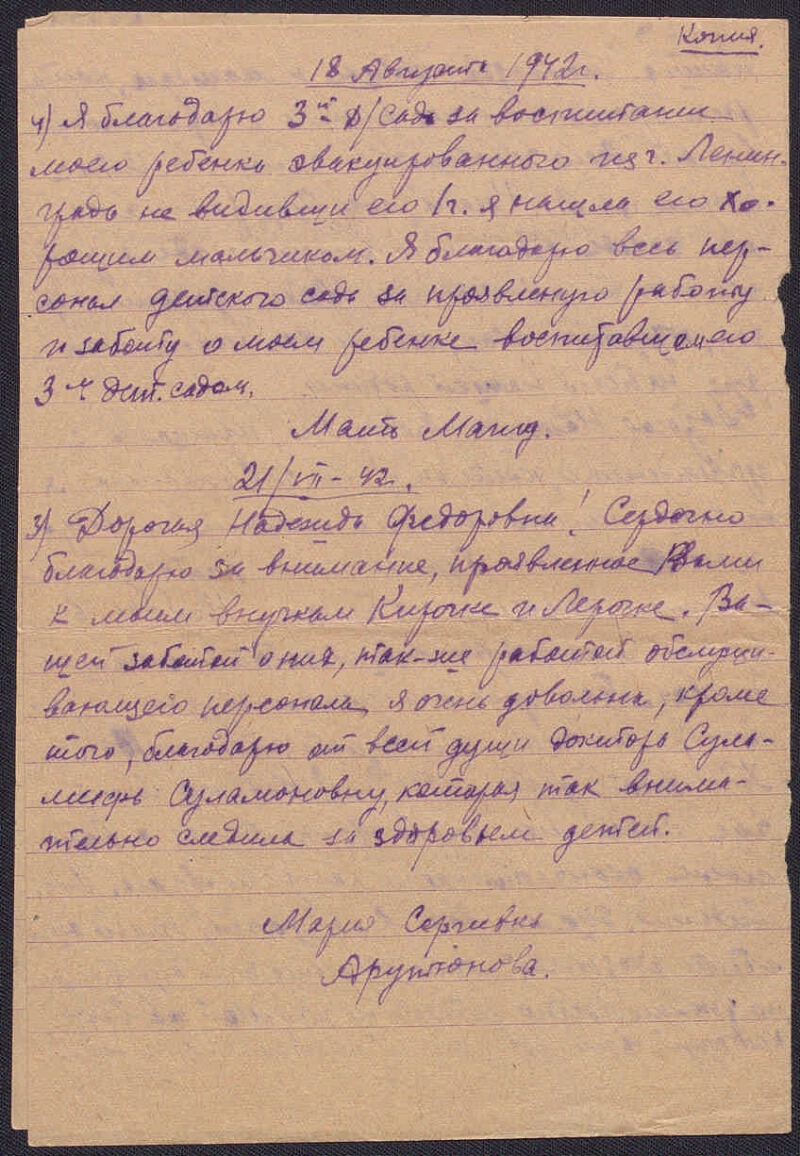 Копия.
18 Августа 1942 г.
4) Я благодарю 3ий д/сад за воспитание
моего ребенка эвакуированного из г. Ленин-
града не видивши его 1 г. я нашла его хо-
рошим мальчиком. Я благодарю весь пер-
сонал детского сада за проявленую работу
и заботу о моем ребенке воспитавшем его
3м дет. садом.
Мать
21/VII-42 г.
3) Дорогая Надежда Федоровна! Сердечно
благодарю за внимание, проявленное Вами
к моим внучкам Кирочке и Лерочке. Ва-
шей заботой о них, так-же работой обслужи-
вающего персонала, я очень довольна, кроме
того, благодарю от всей души доктора Сула-
мифь Суламоновну, которая так внима-
тельно следила за здоровьем детей.
Мария Сергеевна
Арутюнова.